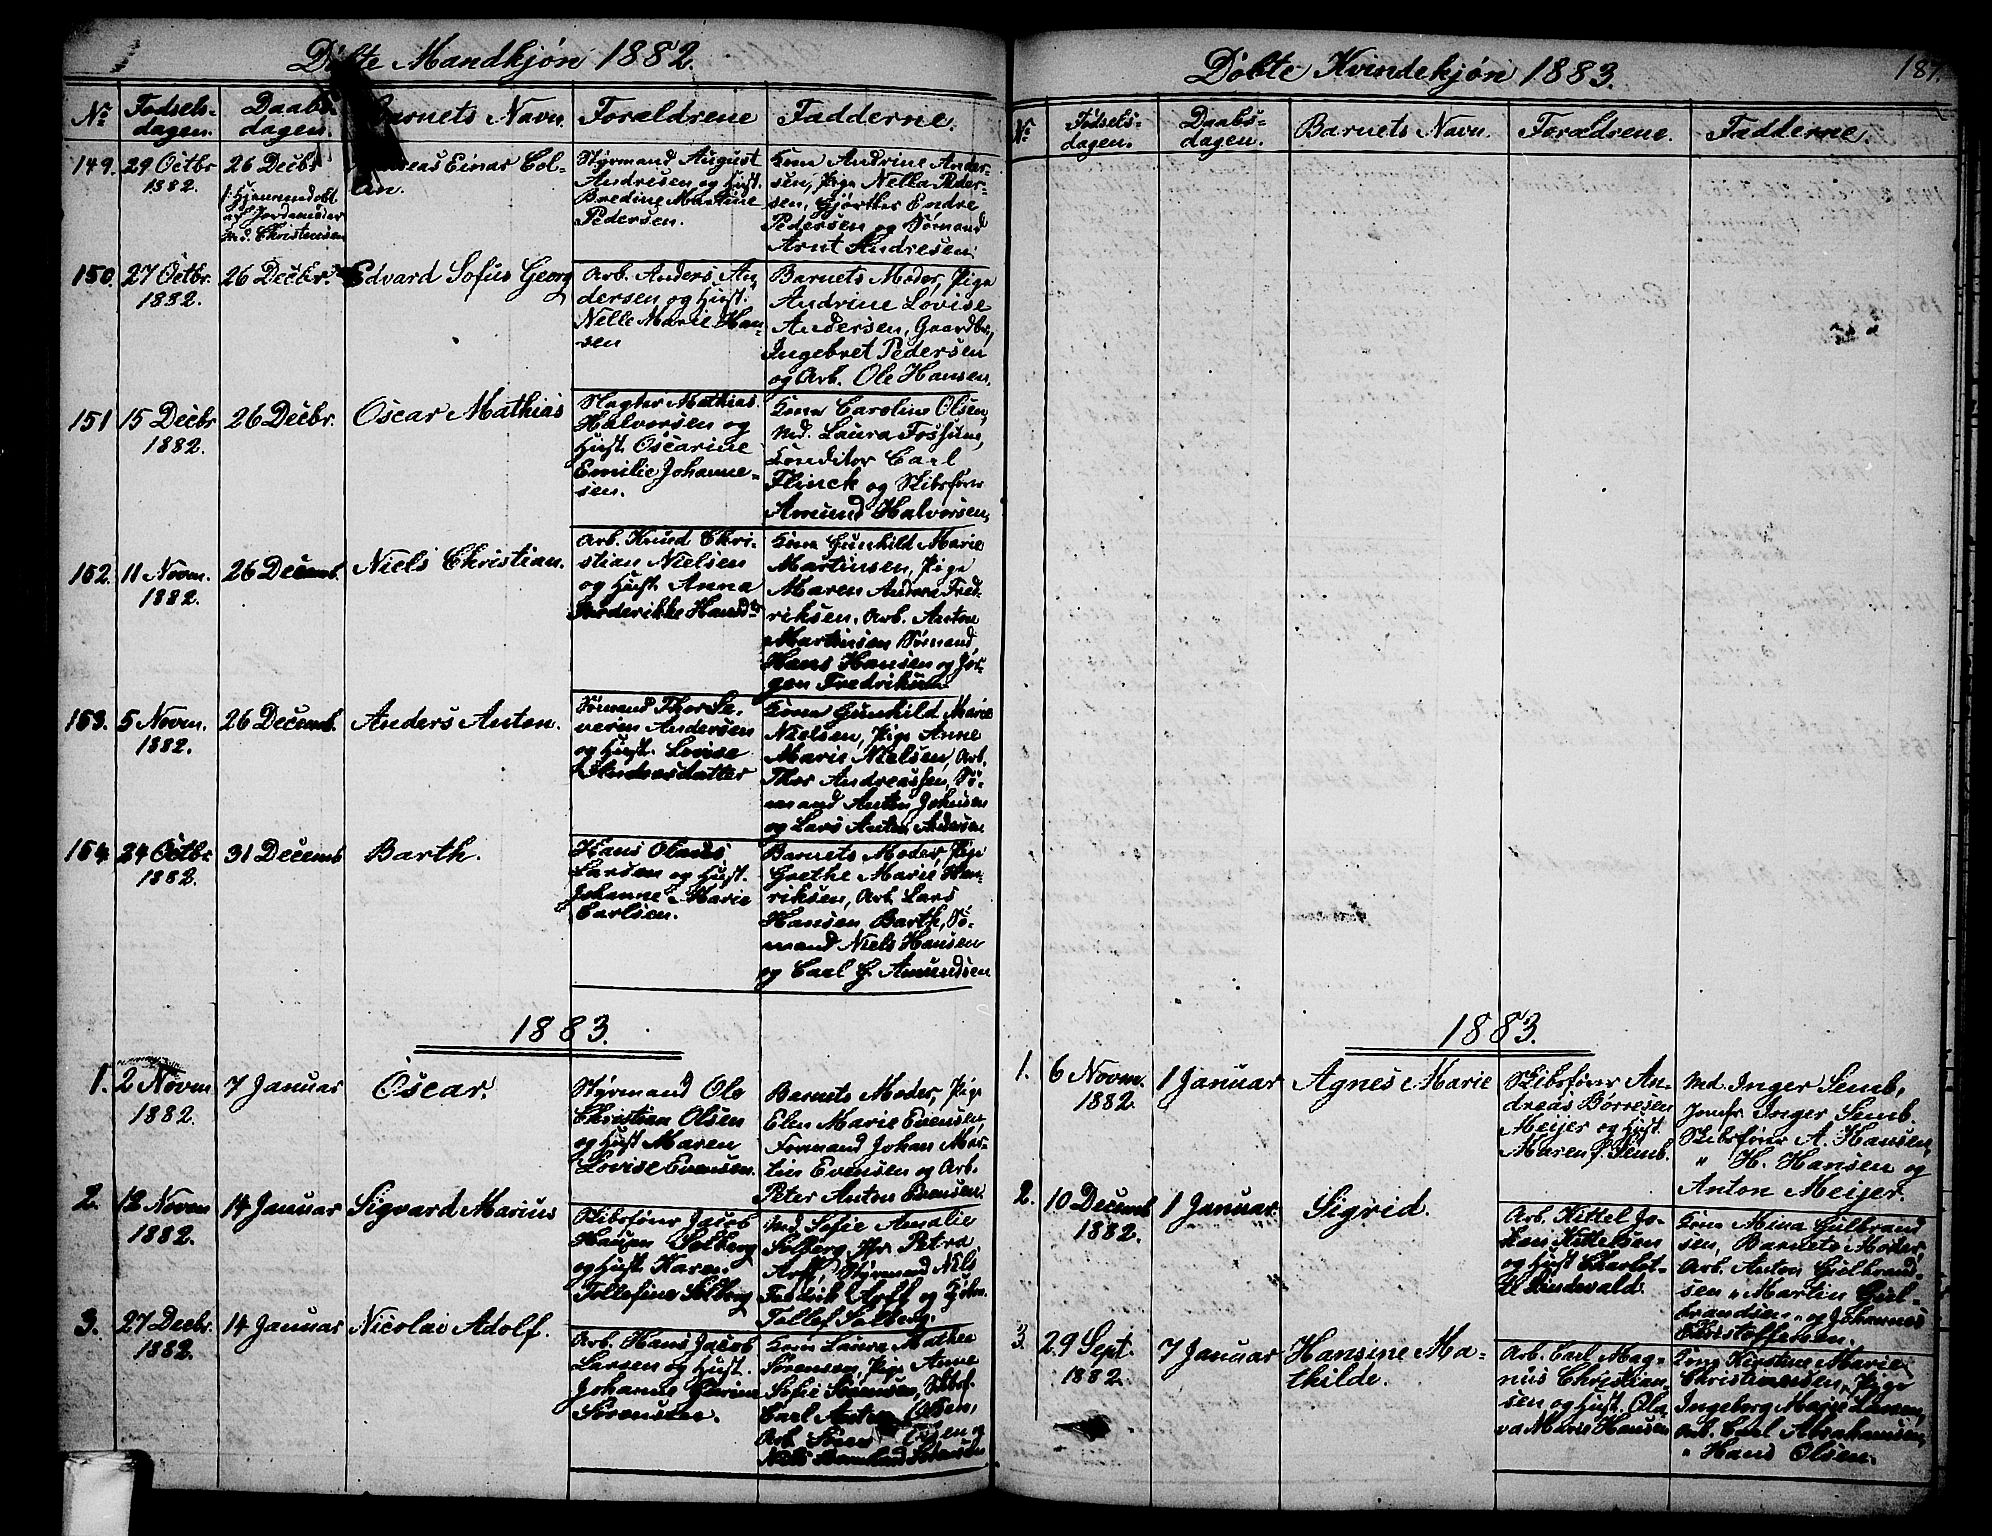 Døbte Mandkjøn 1882.
No
Fødsels-
dagen.
Daabs-
dagen.
Barnets Navn.
Forældrene
Fadderne.
149.
29 Octbr
1882.
26 Decbr
af Jordemoder
Md. Christensen
Andreas Einar Col-
lin.
Styrmand August
Andresen og Hust.
Bredine Martine
Pedersen.
Kone Andrine Ander-
sen, Pige Nella Peder-
sen, Gjørtler Endre
Pedersen og Sømand
Arnt Andresen.
150.
27 Octbr.
1882.
26 Decbr.
Edvard Sofus Georg
Arb. Anders An-
dersen og Hust.
Nelle Marie Han-
sen
Barnets Moder, Pige
Andrine Lovise
Andersen, Gaardbr.,
Ingebret Pedersen
og Arb. Ole Hansen.
151
15 Decbr
1882.
26 Decbr.
Oscar Mathias
Slagter Mathias
Halvorsen og
Hust. Oscarine
Emilie Johanne-
sen.
Kone Caroline Olsen,
Md. Laura Fossum,
Conditor Carl
Flinck og Skibsfører
Amund Halvorsen,
152.
11 Novm.
1882.
26 Decemb.
Niels Christian.
Arb. Knud Chri-
stian Nielsen
og Hust. Anna
Frederikke Hansdr
Kone Gunhild Marie
Martinsen, Pige
Maren Andrea Fred-
riksen, Arb. Anton
Martinsen Sømand,
Hans Hansen og Jør-
gen Fredriksen
153.
5 Novm.
1882.
26 Decemb.
Anders Anton.
Sømand Thor Se-
verin Andersen
og Hust. Lovise
Andersdatter
Kone Gunhild Marie
Nielsen, Pige Anne
Marie Nielsen, Arb.
Thor Andreassen, Sø-
mand Anton Johnsen
og Lars Anton Andersen.
154.
24 Octbr
1882.
31 Decemb
Barth.
Hans Olaus
Larsen og Hust.
Johanne Marie
Carlsen.
Barnets Moder, Pige
Grethe Marie Hen-
riksen, Arb. Lars
Hansen, Barth, Sø-
mand Niels Hansen
og Carl G. Amundsen
1883.
1.
2 Novm
1882.
7 Januar
Oscar.
Styrmand Ole
Christian Olsen
og Hust. Maren
Lovise Evensen.
Barnets Moder, Pige
Elen Marie Evensen,
Formand Johan Mar-
tin Evensen og Arb.
Peter Anton Evensen.
2.
12 Novm
1882.
14 Januar
Sigvard Marius
Skibsfører Jacob
Hansen Solberg
og Hust. Karen
Tollefine Solberg
Md Sofie Amalie
Solberg, Jfr. Petra
Arff, Styrmand Nils
Fredrik Arff og
Tollef Solberg.
3.
27 Decbr.
1882.
14 Januar
Nicolai Adolf.
Arb. Hans Jacob
Larsen og Hust.
Johanne
Sørensen.
Kone Laura Mathea
Sørensen, Pige Anne
Sofie Sørensen, Skbsf.
Carl Anton Olsen,
Arb.
Døbte Kvindekjøn 1883.
187.
No
Fødsels-
dagen.
Daabs-
dagen.
Barnets Navn.
Forældrene.
Fadderne.
1883.
1.
6 Novm.
1882.
1 Januar
Agnes Marie
Skibsfører An-
dreas Børresen
Meijer og Hust.
Maren J. Semb.
Md. Inger Semb,
Jomfr. Inger Semb
Skibsfører A. Hansen,
" H. Hansen og
Anton Meijer.
2.
10 Decemb
1882.
1 Januar.
Sigrid.
Arb. Kittel Jo-
han Kittelsen
og Hust Charlot-
te Lindevald.
Kone Mina Gulbrand
sen, Barnets Moder,
Arb. Anton Gulbrand-
sen " Martin Gul-
brandsen " og Johannes
Christoffersen.
3.
29 Sept.
1882.
7 Januar
Hansine Ma-
thilde.
Arb. Carl Mag-
nus Christian-
sen og Hust. Ola-
va Marie Hansen
Kone Kirstine Marie
Christiansen, Pige
Ingeborg Marie Larsen,
Arb. Carl Abrahamsen,
" Hans Olsen.